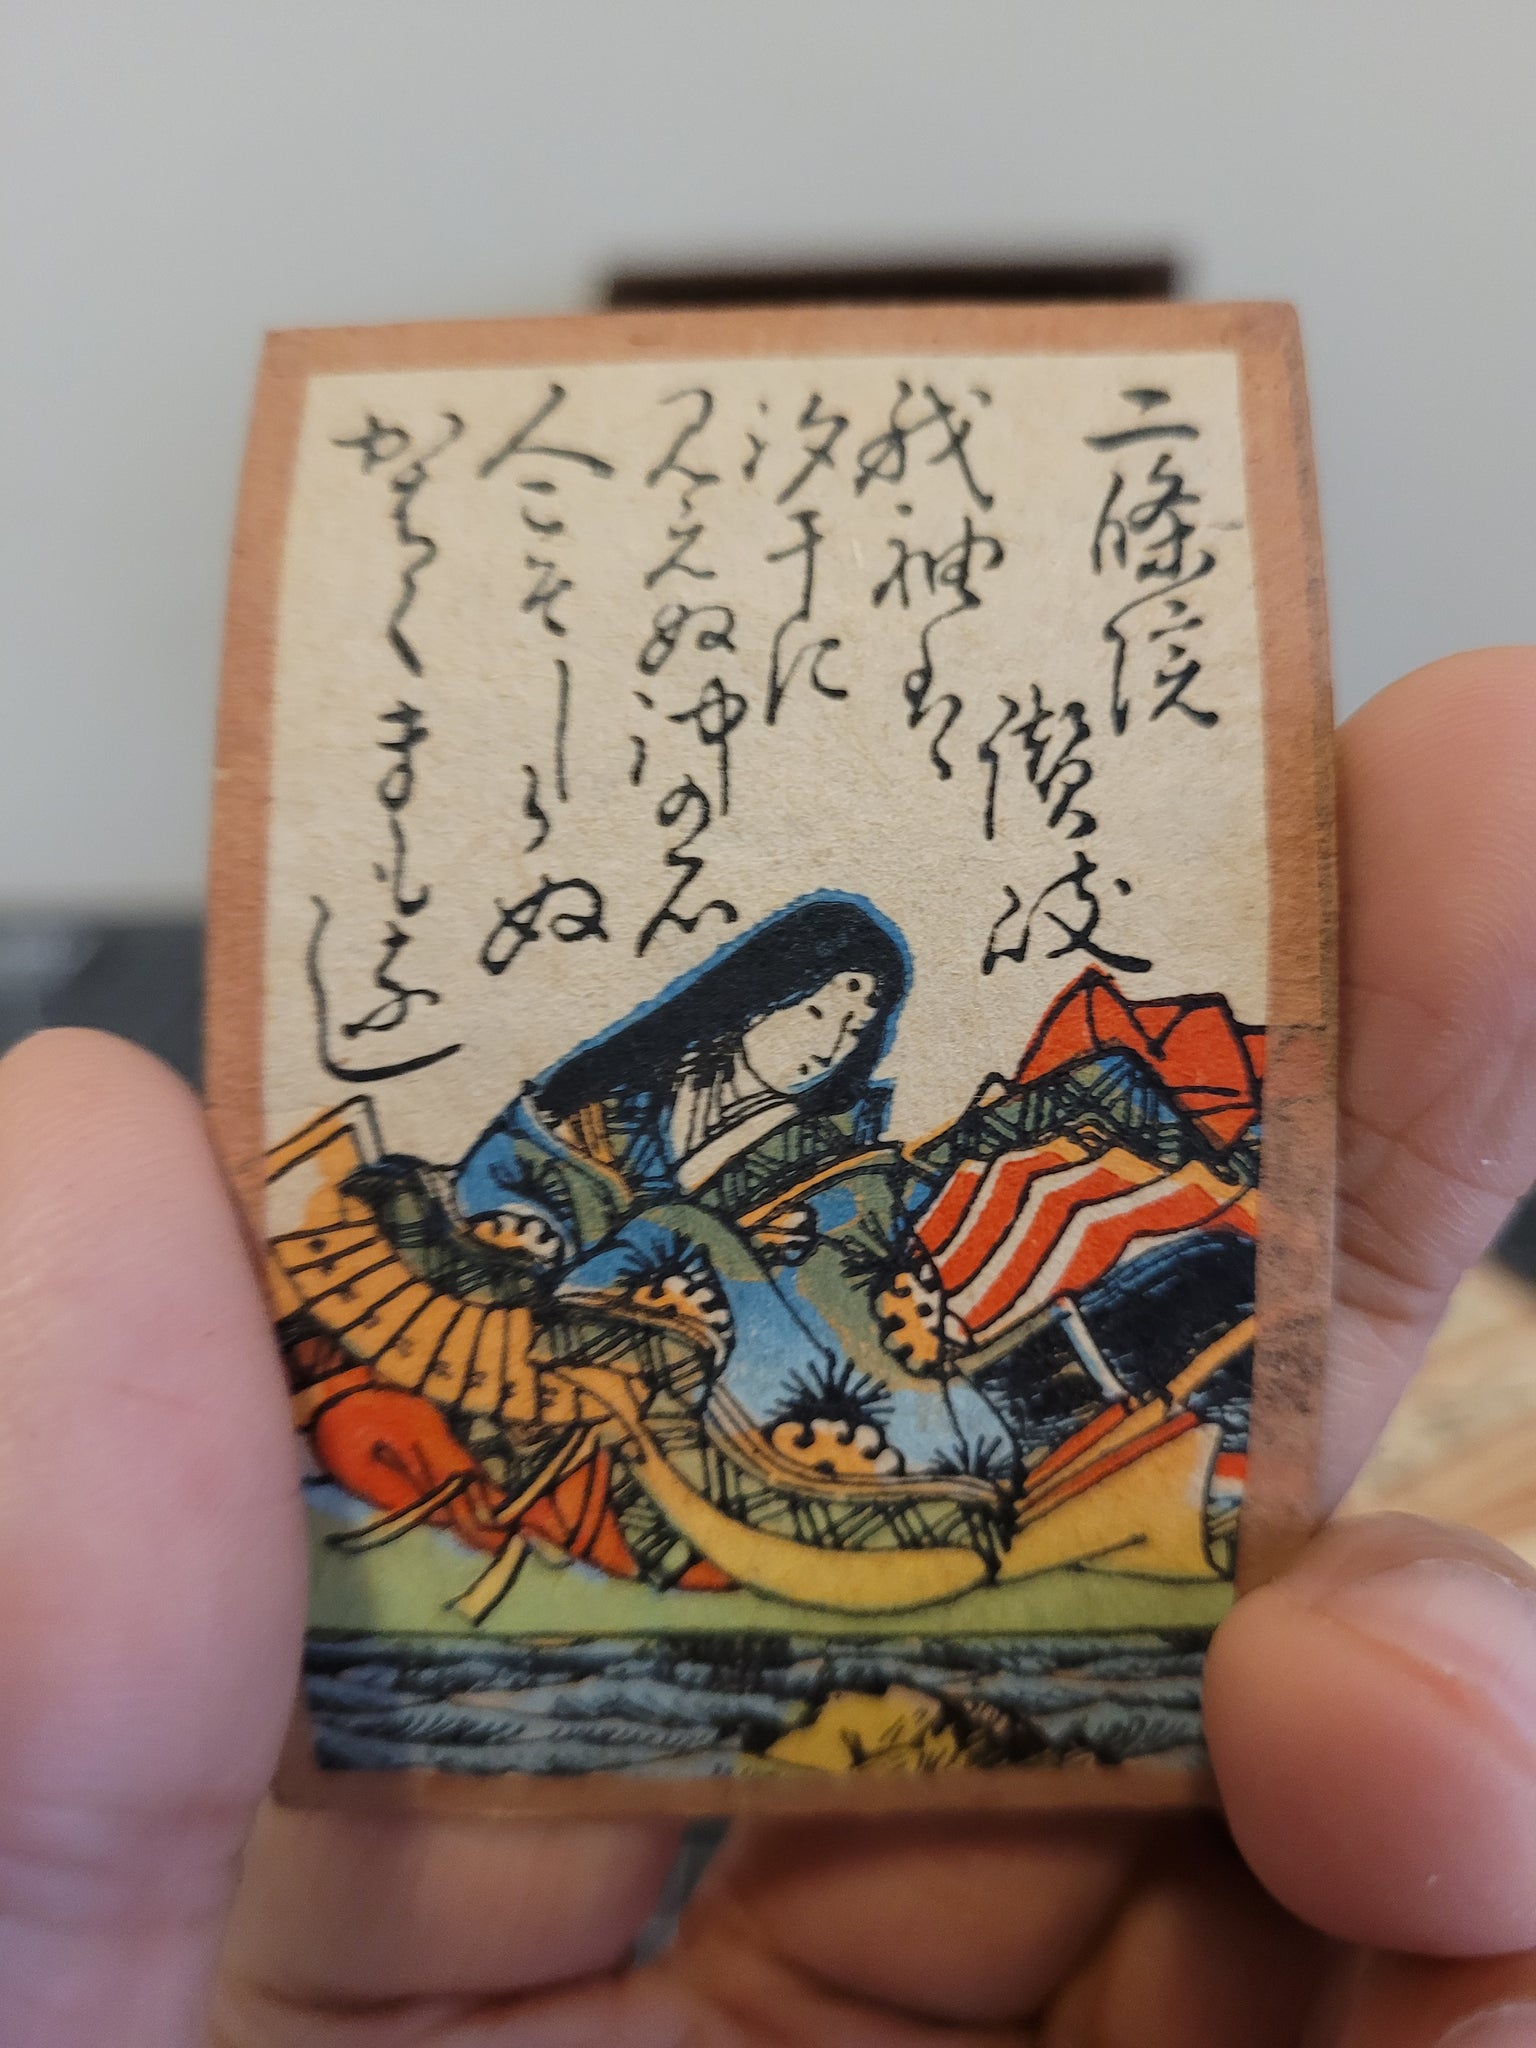 二條院
讃岐
我袖は
汐干に
見えぬ沖の石
人こそしらぬ
かはくまもなし